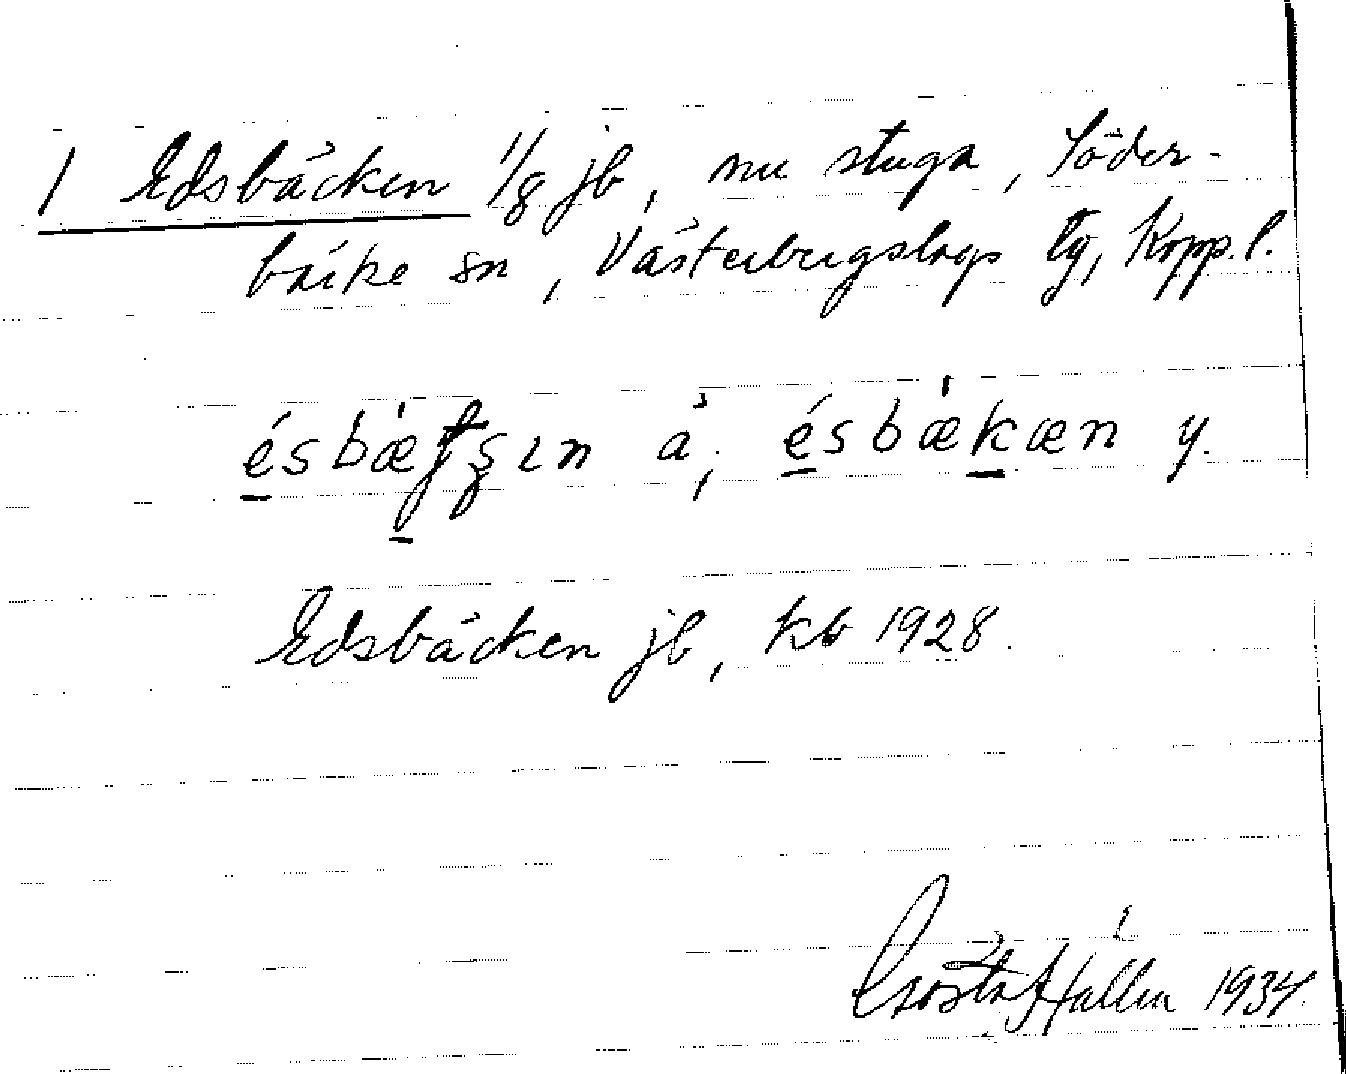 1 Edsbäcken 1/8 jb, nu stuga, Söder-
bärke sn, Västerbergslags tg, Kopp. l.
ésbæ̀ʃʂın ä; ésbæ̀kæn y.
Edsbäcken jb, kb 1928.
Gösta Hallén 1934.